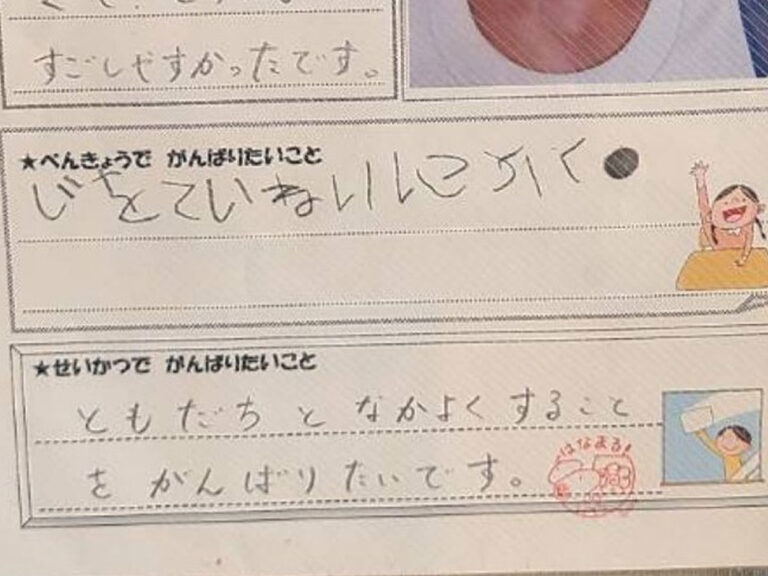 すごしやすかったです。
★べんきょうで がんばりたいこと
じをていねいにかく
★せいかつで がんばりたいこと
ともだちとなかよくすること
をがんばりたいです。
はなまる!